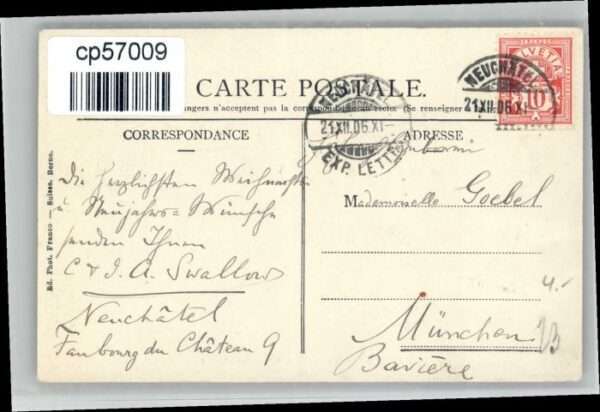 cp57009
CARTE POSTALE.
angers n'acceptent pas la correspondance au recto. (Se renseigner
CORRESPONDANCE
ADRESSE
NEUCHÂTEL
21.XII.06.XI-
EXP. LETTR.
NEUCHÂTEL
21.XII.06.XI-
HELVETIA
10
Die herzlichsten Weihnachts
u. Neujahrs=Wünsche
senden Ihnen
C & J. A. Swallow
Neuchâtel
Faubourg du Château 9
Mademoiselle Goebel
München
Bavière
4.-
Ed. Phot. Franco-Suisse, Berne.